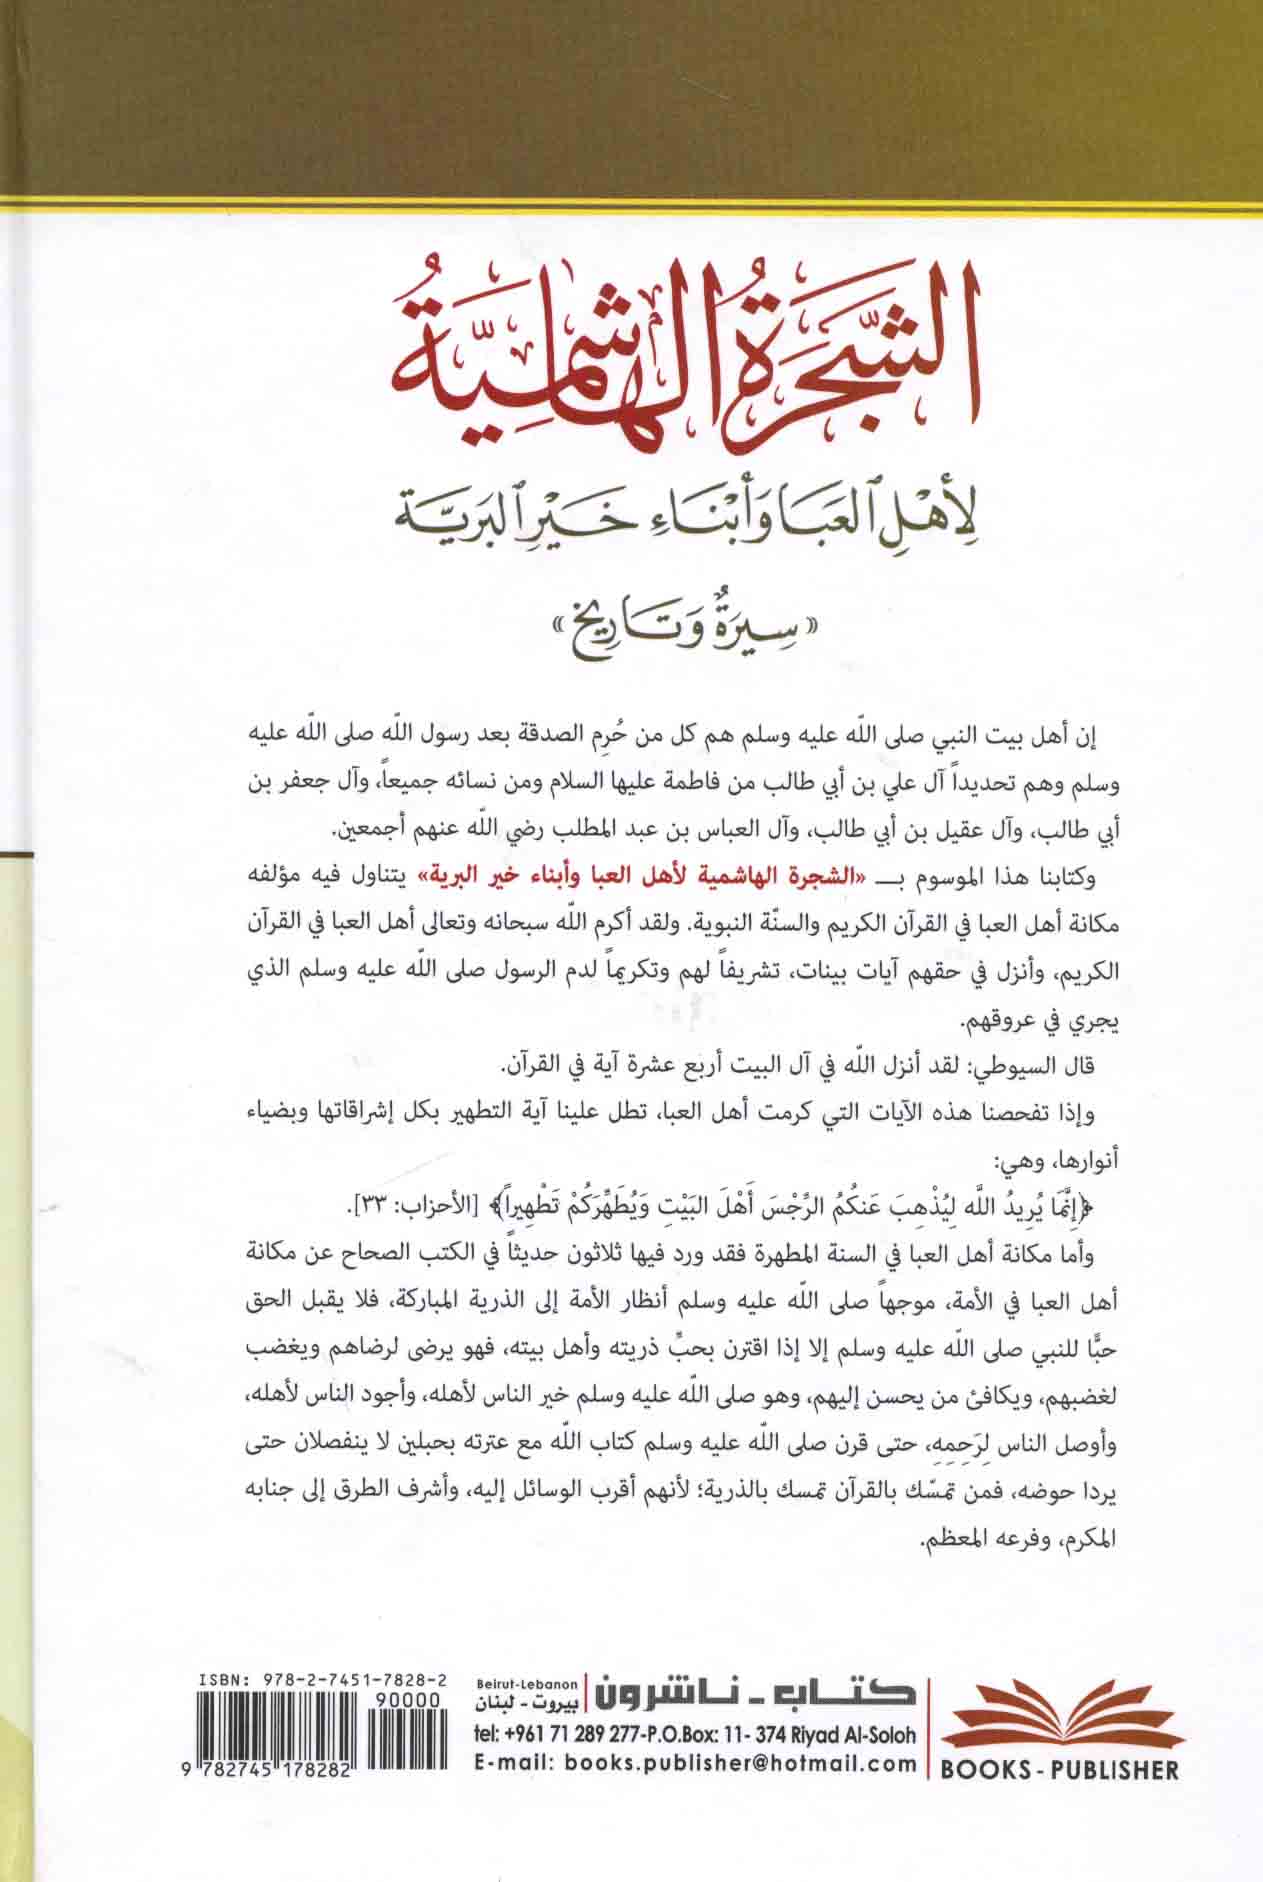 الشَّجَرَةُ الهَاشِمِيَّةُ
لِأَهْلِ العَبَا وَأَبْنَاءِ خَيْرِ البَرِيَّة
«سِيرَةٌ وَتَارِيخ»
إن أهل بيت النبي صلى اللّه عليه وسلم هم كل من حُرِم الصدقة بعد رسول اللّه صلى اللّه عليه
وسلم وهم تحديداً آل علي بن أبي طالب من فاطمة عليها السلام ومن نسائه جميعاً، وآل جعفر بن
أبي طالب، وآل عقيل بن أبي طالب، وآل العباس بن عبد المطلب رضي اللّه عنهم أجمعين.
وكتابنا هذا الموسوم بـــ «الشجرة الهاشمية لأهل العبا وأبناء خير البرية» يتناول فيه مؤلفه
مكانة أهل العبا في القرآن الكريم والسنّة النبوية. ولقد أكرم اللّه سبحانه وتعالى أهل العبا في القرآن
الكريم، وأنزل في حقهم آيات بينات، تشريفاً لهم وتكريماً لدم الرسول صلى اللّه عليه وسلم الذي
يجري في عروقهم.
قال السيوطي: لقد أنزل اللّه في آل البيت أربع عشرة آية في القرآن.
وإذا تفحصنا هذه الآيات التي كرمت أهل العبا، تطل علينا آية التطهير بكل إشراقاتها وبضياء
أنوارها، وهي:
﴿إِنَّمَا يُرِيدُ اللَّه لِيُذْهِبَ عَنكُمُ الرِّجْسَ أَهْلَ البَيْتِ وَيُطَهِّرَكُمْ تَطْهِيراً﴾ [الأحزاب: ٣٣].
وأما مكانة أهل العبا في السنة المطهرة فقد ورد فيها ثلاثون حديثاً في الكتب الصحاح عن مكانة
أهل العبا في الأمة، موجهاً صلى اللّه عليه وسلم أنظار الأمة إلى الذرية المباركة، فلا يقبل الحق
حبًّا للنبي صلى اللّه عليه وسلم إلا إذا اقترن بحبِّ ذريته وأهل بيته، فهو يرضى لرضاهم ويغضب
لغضبهم، ويكافئ من يحسن إليهم، وهو صلى اللّه عليه وسلم خير الناس لأهله، وأجود الناس لأهله،
وأوصل الناس لِرَحِمِهِ، حتى قرن صلى اللّه عليه وسلم كتاب اللّه مع عترته بحبلين لا ينفصلان حتى
يردا حوضه، فمن تمسّك بالقرآن تمسك بالذرية؛ لأنهم أقرب الوسائل إليه، وأشرف الطرق إلى جنابه
المكرم، وفرعه المعظم.
كتاب - ناشرون
Beirut-Lebanon
بيروت - لبنان
tel: +961 71 289 277-P.O.Box: 11- 374 Riyad Al-Soloh
E-mail: books.publisher@hotmail.com
BOOKS - PUBLISHER
ISBN: 978-2-7451-7828-2
90000
9 782745 178282